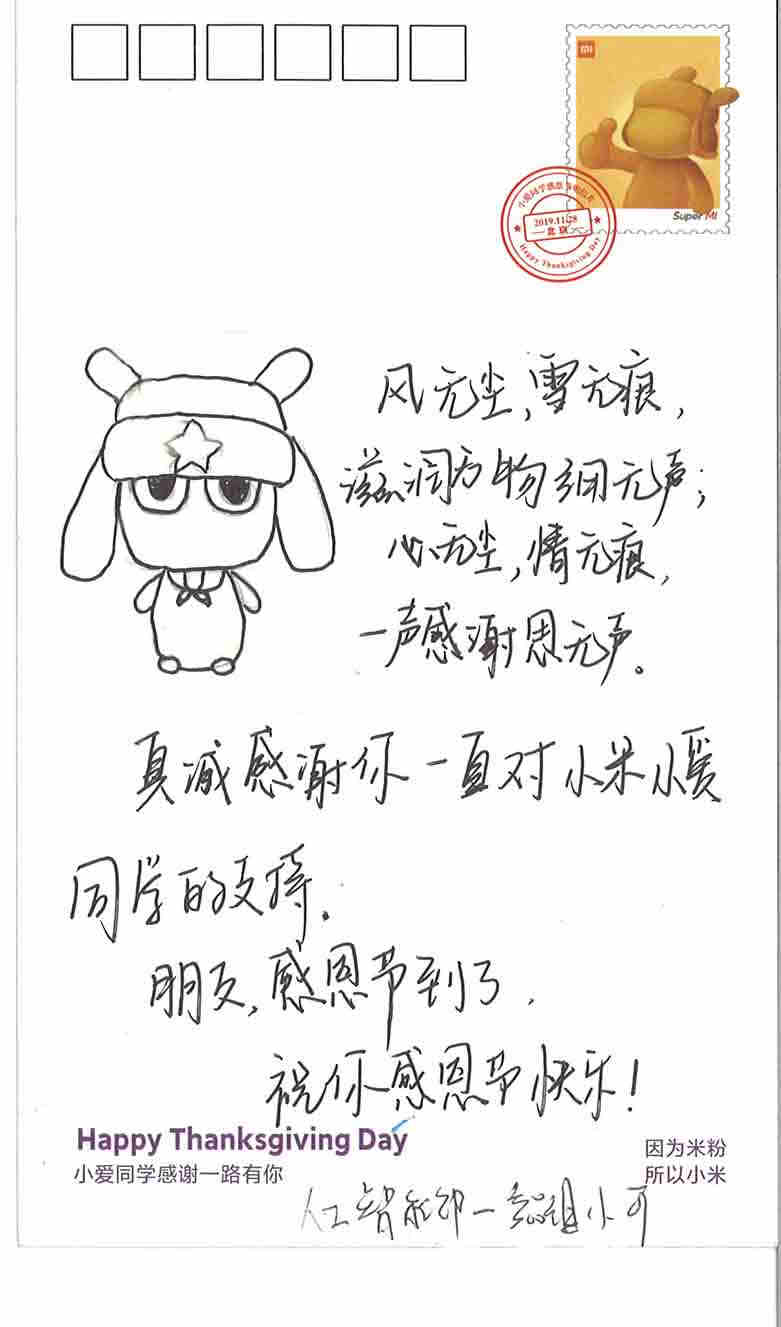 MI
Super MI
小爱同学感恩节明信片
2019.11.28
北京
Happy Thanksgiving Day
风无尘，雪无痕，
滋润万物细无声；
心无尘，情无痕，
一声感谢恩无声。
真诚感谢你一直对小米小爱
同学的支持。
朋友，感恩节到了，
祝你感恩节快乐！
Happy Thanksgiving Day
小爱同学感谢一路有你
因为米粉
所以小米
人工智能部一 组小可